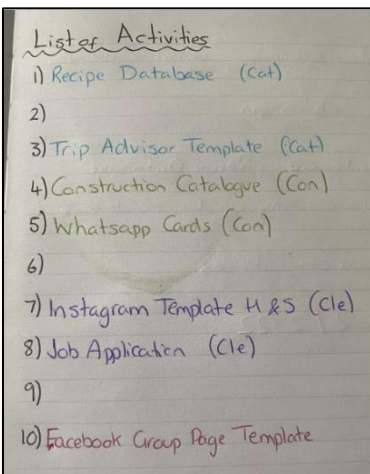 List of Activities
1) Recipe Database (Cat)
2)
3) Trip Advisor Template (Cat)
4) Construction Catalogue (Con)
5) Whatsapp Cards (Con)
6)
7) Instagram Template H & S (Cle)
8) Job Application (Cle)
9)
10) Facebook Group Page Template